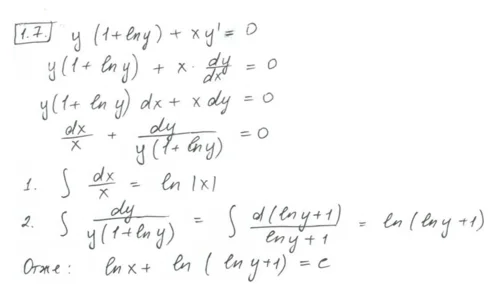 1.7. y (1+ln y) + x y' = 0
y(1+ ln y) + x · dy/dx = 0
y(1+ ln y) dx + x dy = 0
dx/x + dy/(y(1+ ln y)) = 0
1. ∫ dx/x = ln |x|
2. ∫ dy/(y(1+ln y)) = ∫ d(ln y+1)/(ln y+1) = ln (ln y+1)
Отже: ln x + ln ( ln y+1) = c